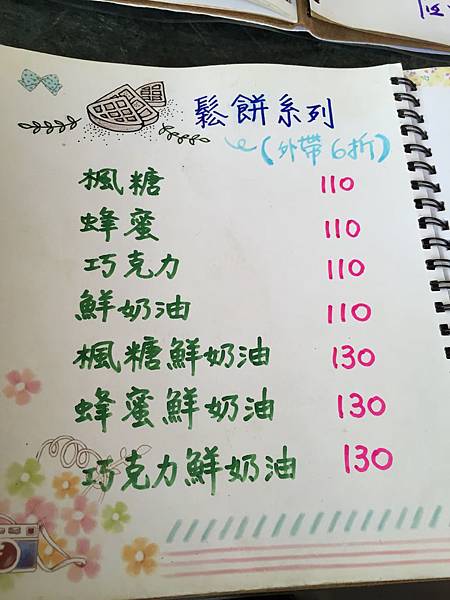 鬆餅系列
(外帶6折)
楓糖 110
蜂蜜 110
巧克力 110
鮮奶油 110
楓糖鮮奶油 130
蜂蜜鮮奶油 130
巧克力鮮奶油 130